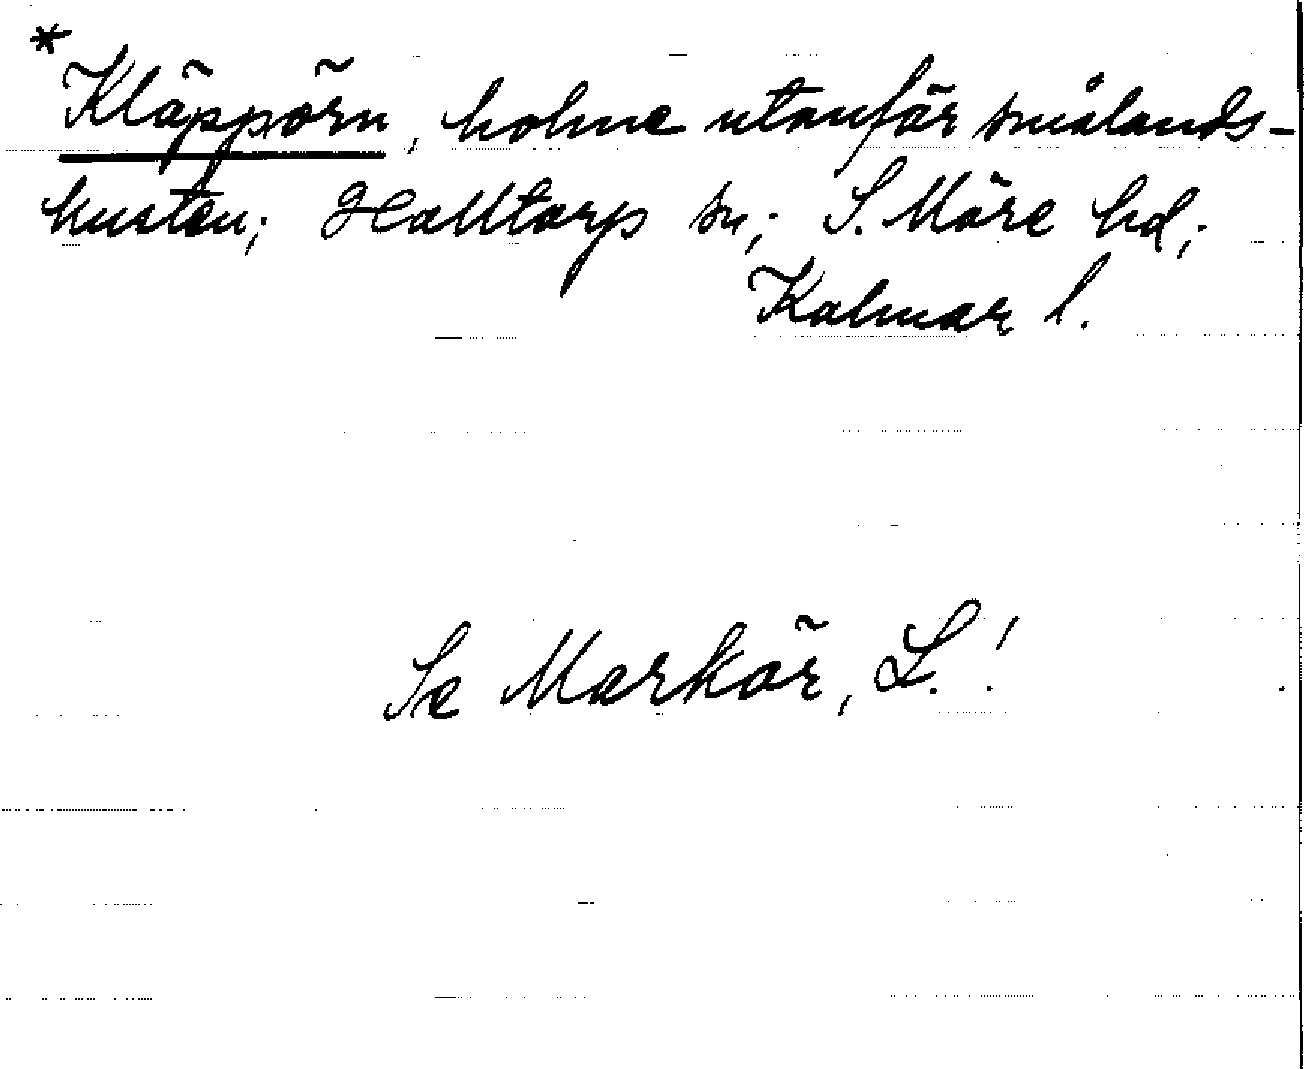 *Kläppörn, holme utanför smålands-
kusten; Halltorp sn; S. Möre hd;
Kalmar l.
Se Markör, L.!